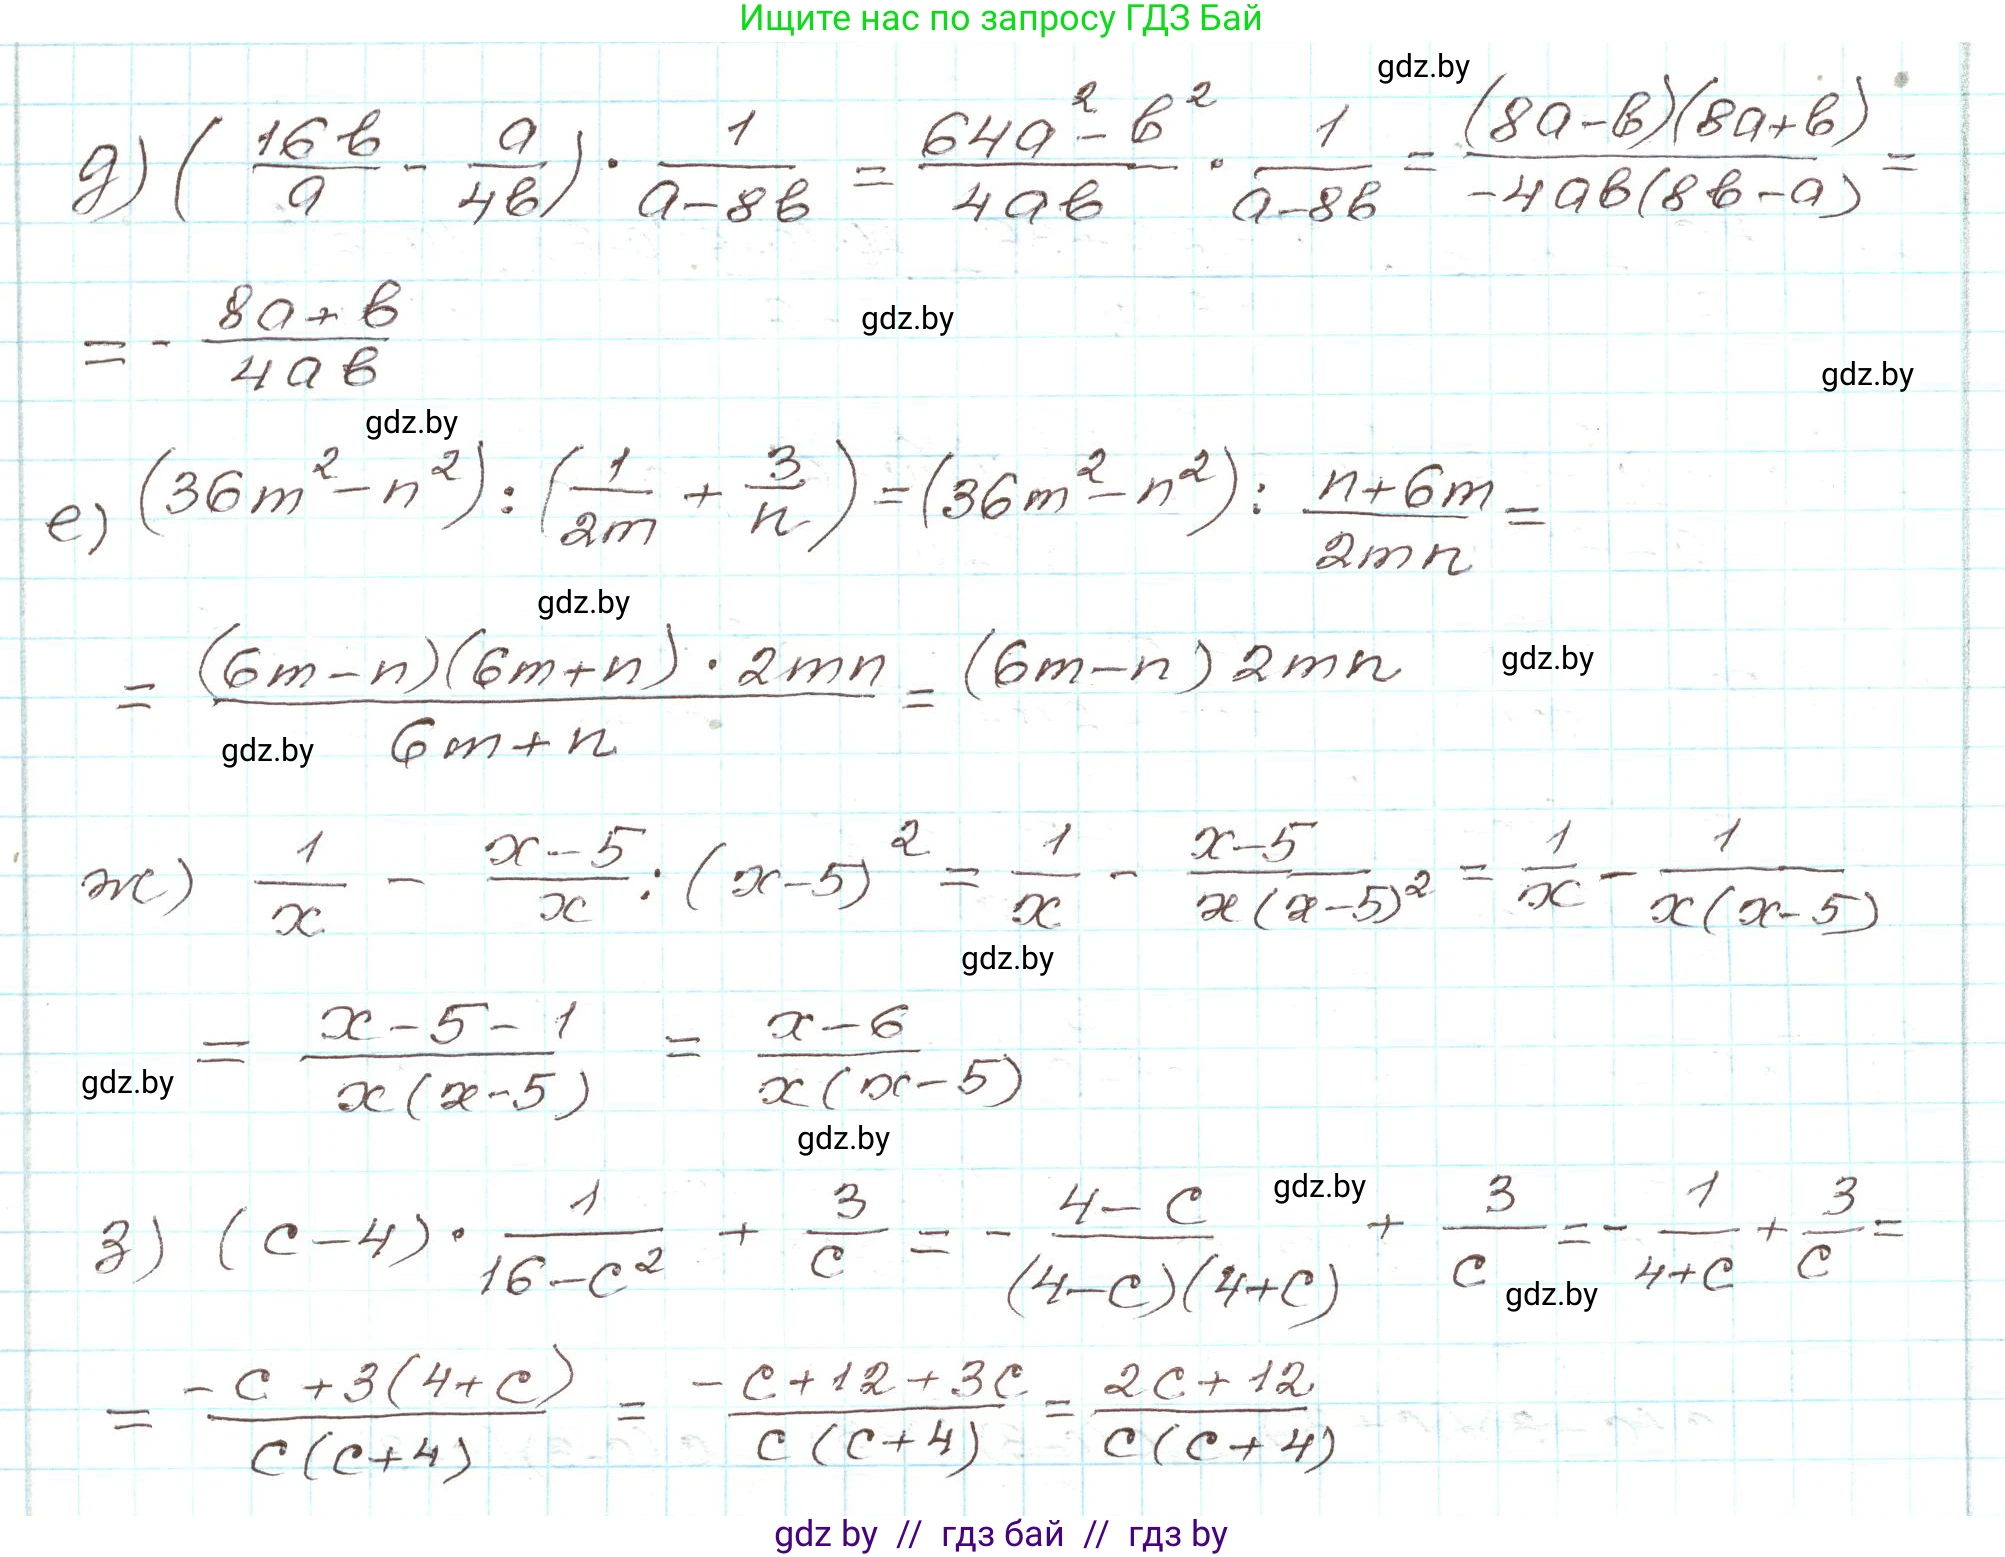 Ищите нас по запросу ГДЗ Бай
gdz.by
д) (16b/a - a/4b) · 1/(a-8b) = (64a² - b²)/4ab · 1/(a-8b) = (8a-b)(8a+b)/(-4ab(8b-a)) =
= - (8a+b)/4ab
gdz.by
gdz.by
gdz.by
е) (36m² - n²) : (1/2m + 3/n) = (36m² - n²) : (n+6m)/2mn =
gdz.by
= (6m-n)(6m+n) · 2mn/(6m+n) = (6m-n) 2mn
gdz.by
gdz.by
ж) 1/x - (x-5)/x : (x-5)² = 1/x - (x-5)/(x(x-5)²) = 1/x - 1/(x(x-5))
gdz.by
= (x-5-1)/(x(x-5)) = (x-6)/(x(x-5))
gdz.by
gdz.by
gdz.by
з) (c-4) · 1/(16-c²) + 3/c = - (4-c)/((4-c)(4+c)) + 3/c = - 1/(4+c) + 3/c =
gdz.by
= (-c+3(4+c))/(c(c+4)) = (-c+12+3c)/(c(c+4)) = (2c+12)/(c(c+4))
gdz by // гдз бай // гдз by